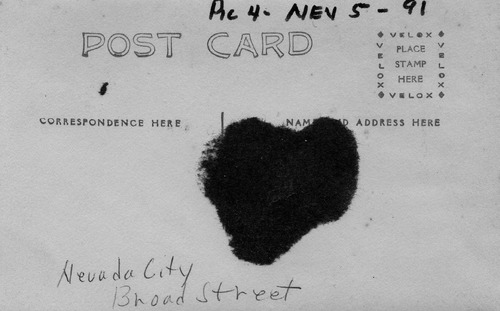 Pic 4- NEV 5-91
POST CARD
VELOX
VELOX
PLACE
STAMP
HERE
VELOX
VELOX
CORRESPONDENCE HERE
NAME AND ADDRESS HERE
Nevada City
Broad Street